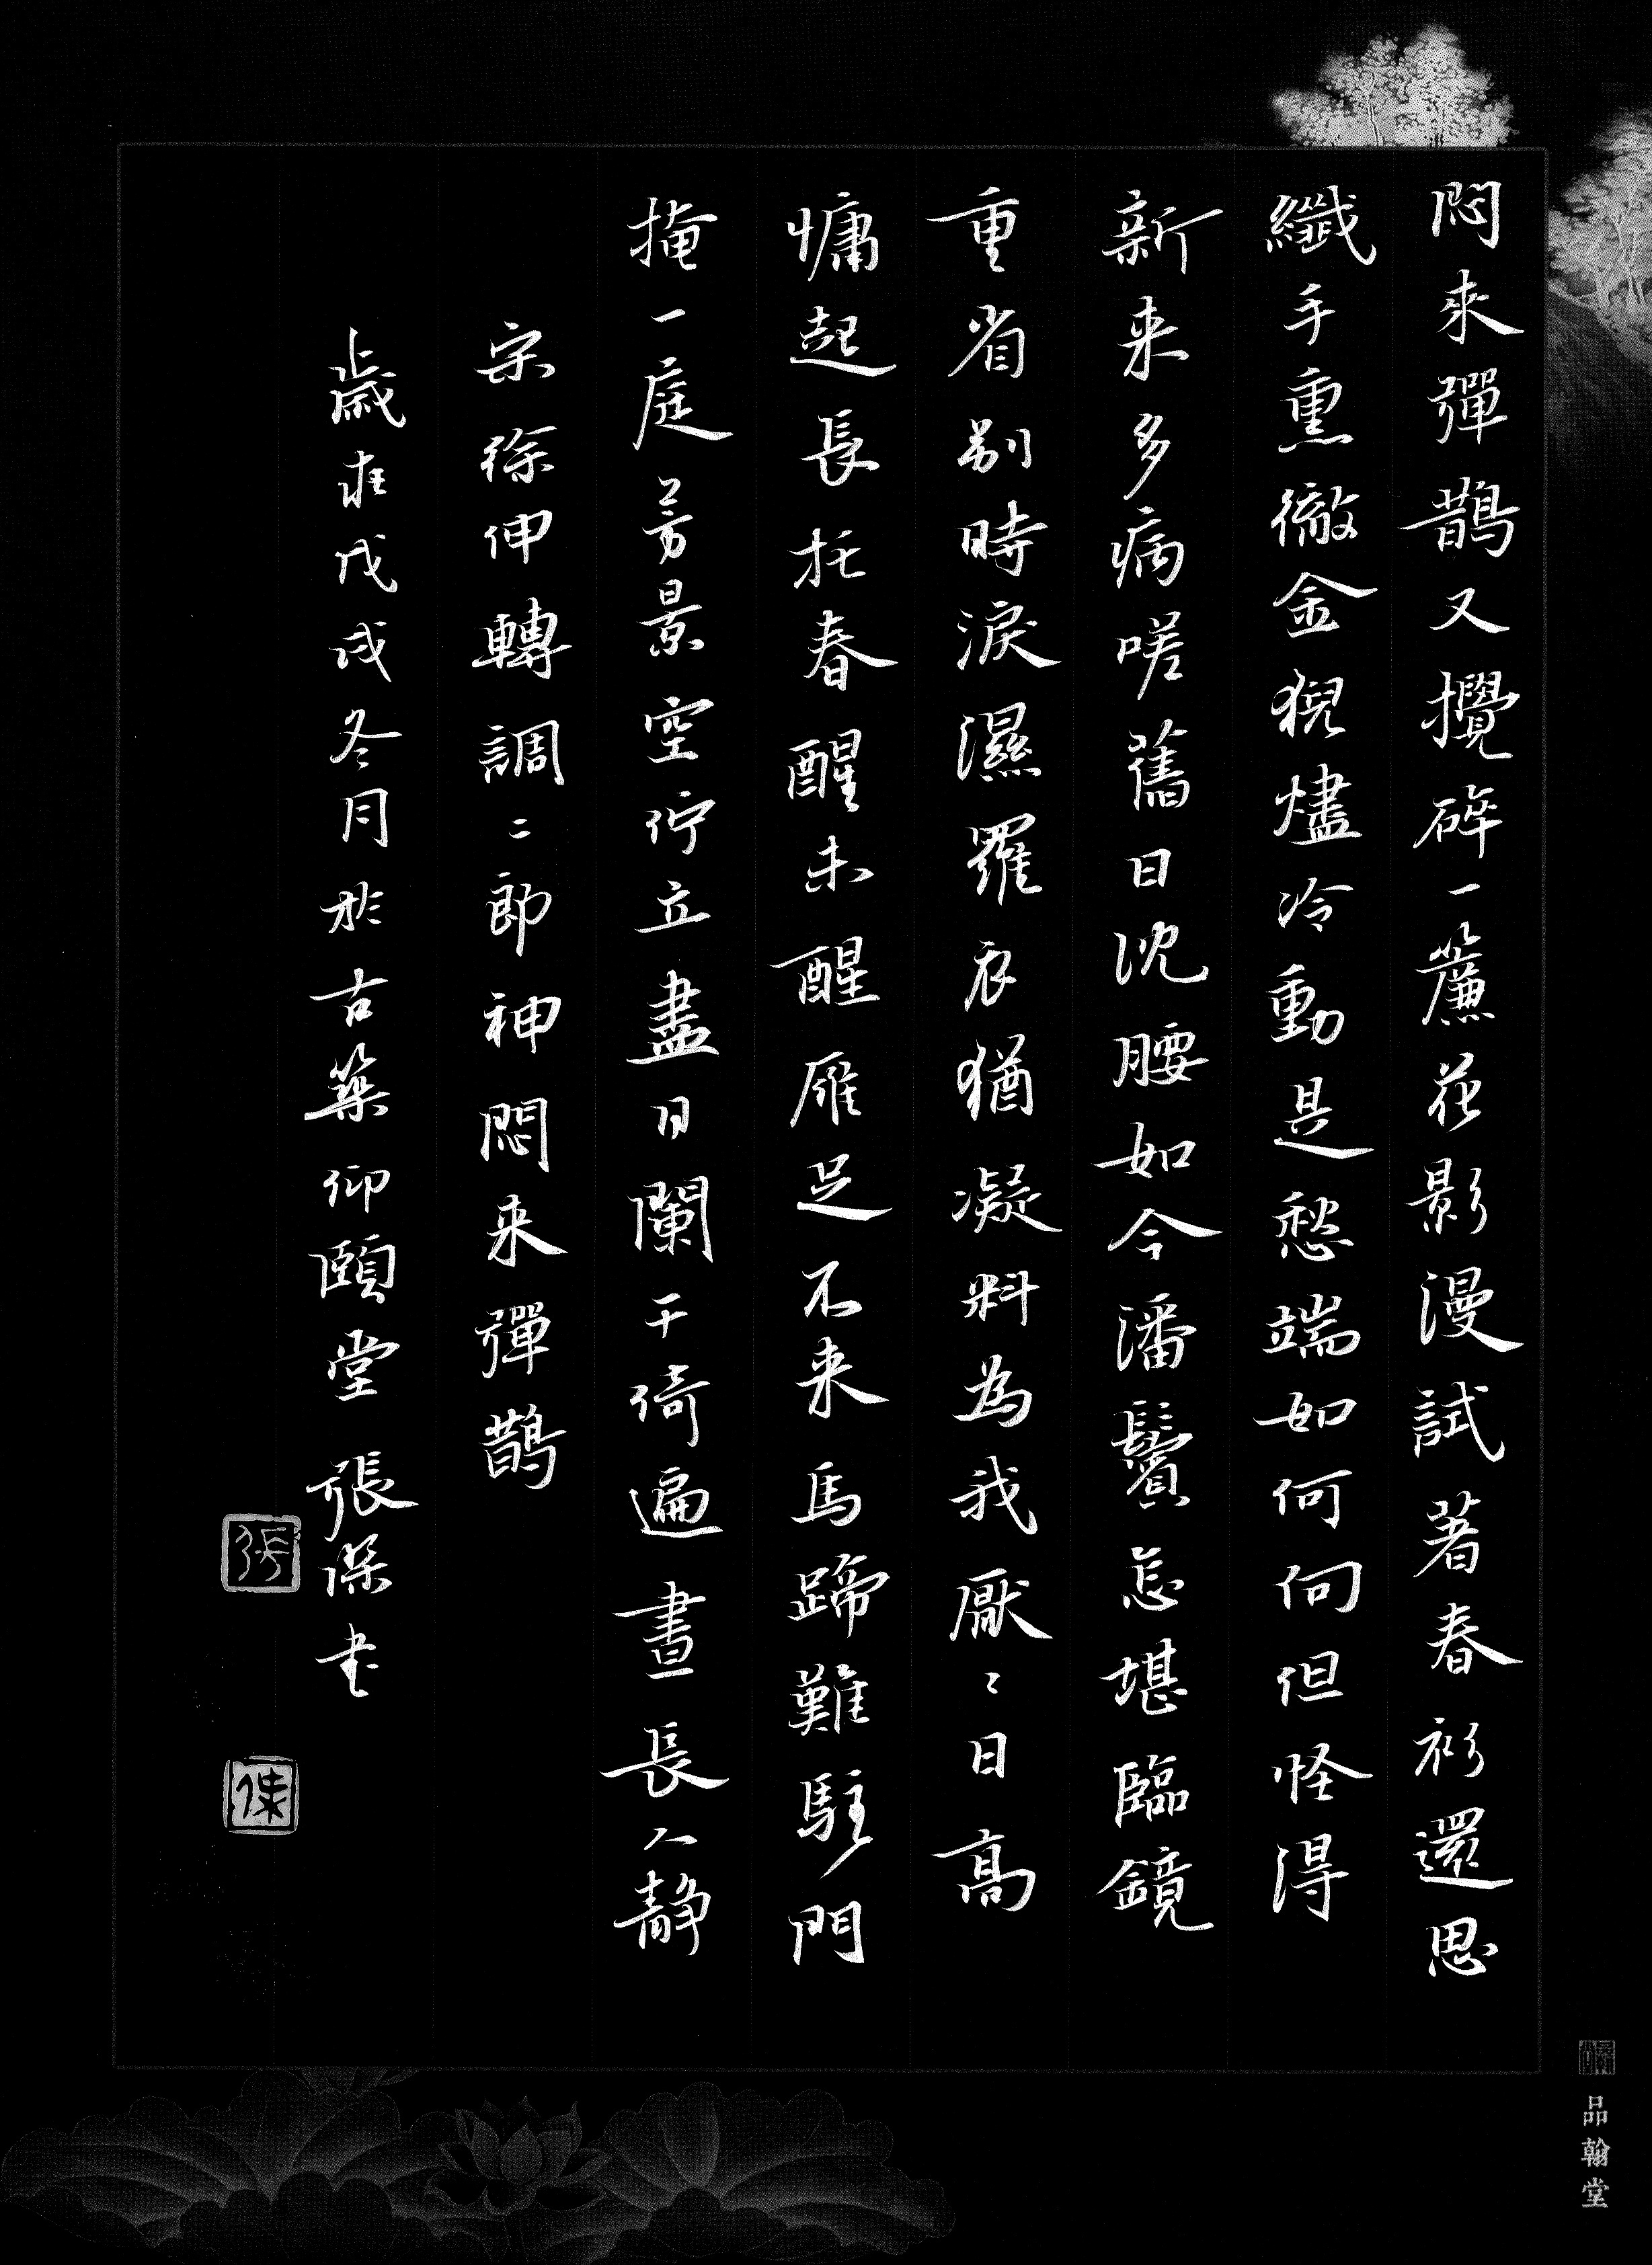 悶來彈鵲又攪碎一簾花影漫試著春衫還思
纖手熏徹金猊燼冷動是愁端如何向但怪得
新来多病嗟舊日沈腰如今潘鬢怎堪臨鏡
重省别時淚濕羅衣猶凝料為我厭〻日高
慵起長托春酲未醒雁足不来馬蹄難駐門
掩一庭芳景空佇立盡日闌干倚遍晝長人静
宋徐伸轉調二郎神悶来彈鵲
歲在戊戌冬月於古築仰頤堂張保书
張
保
品翰堂